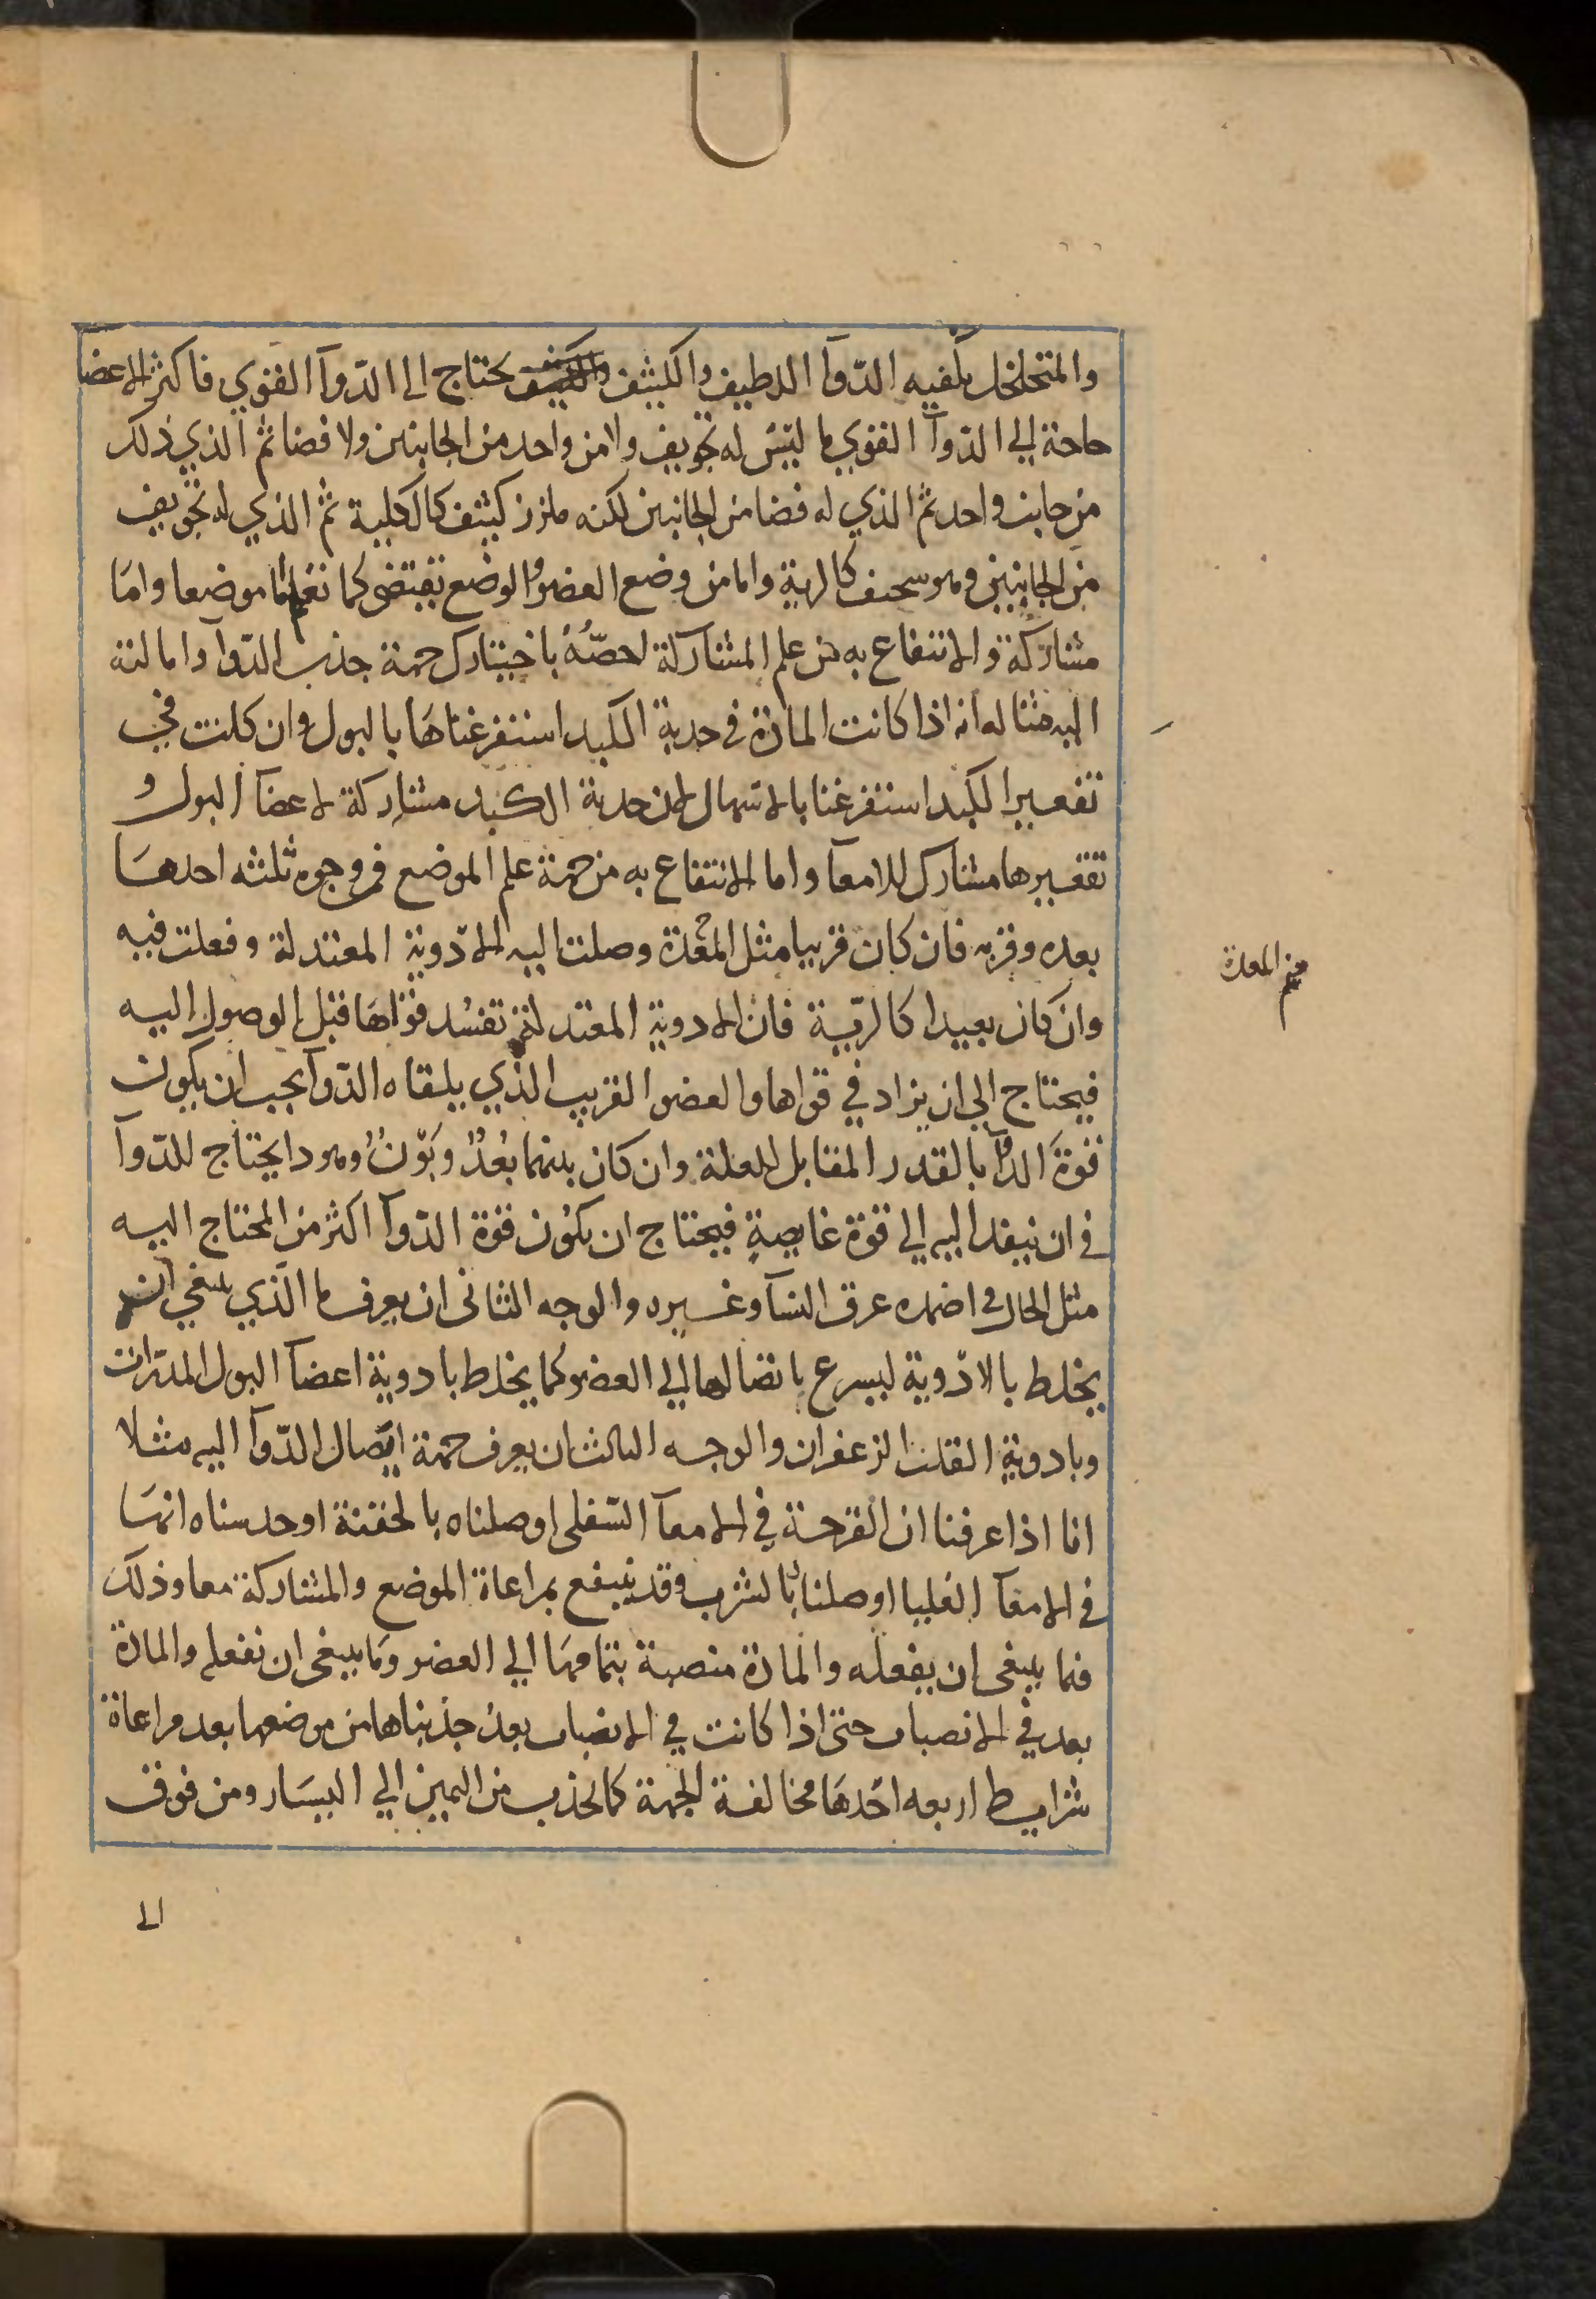 والمتخلخل يكفيه الدّوآ اللطيف والكثيف والكثيف يحتاج الى الدّوآ القوي فاكثر الاعضا
حاجة الي الدّوآ القوي ما ليس له تجويف ولا من واحد من الجانبين ولا فضا ثم الذي ذلك
من جانب واحد ثم الذي له فضا من الجانبين لكنه ملزز كثيف كالكلية ثم الذي له تجويف
من الجانبين وهو سخيف كالرية واما من وضع العضو والوضع يقتضى كما تعلم اما موضعا واما
مشاركة والانتفاع به من علم المشاركة اخصّهُ باختيارك جهة جذب الدّوآ وامالته
اليه مثاله انه اذا كانت المادة في حدبة الكبد استفرغناها بالبول وان كانت في
تقعير الكبد استفرغنا بالاسهال لان حدبة الكبد مشاركة لاعضآ البول و
تقعيرها مشارك للامعآ واما الانتفاع به من جهة علم الموضع فمن وجوه ثلثه احدها
بعده وقربه فان كان قريبا مثل المعدة وصلت اليه الادوية المعتدلة وفعلت فيه
وان كان بعيدا كالريّة فان الادوية المعتدلة تفسد قواها قبل الوصول اليه
فيحتاج الي ان يزاد في قواها والعضو القريب الذي يلقاه الدّوآ يجب ان يكون
قوة الدوآ بالقدر المقابل للعلة وان كان بينهما بُعدٌ وبَوْنٌ وهو دا يحتاج للدّوآ
في ان ينفد اليه الي قوة غايصةٍ فيحتاج ان يكون قوة الدّوآ اكثر من المحتاج اليه
مثل الحال في اضمده عرق النسآ وغيره والوجه الثانى ان يعرف ما الّذي ينبغي ان
يخلط بالادوية ليسرع بايصالها الي العضو كما يخلط بادوية اعضآ البول المدرات
وبادوية القلب الزعفران والوجه الثالث ان يعرف جهة ايصال الدّوآ اليه مثلا
انا اذا عرفنا ان القرحة في الامعآ السّفلى اوصلناه بالحقنة او حدسناه انها
في الامعآ العليا اوصلنا بالشرب وقد ينتفع بمراعاة الموضع والمشاركة معا وذلك
فيما ينبغى ان يفعله والمادة منصبة بتمامها الي العضو وما ينبغى ان نفعله والمادة
بعد في الانصباب حتى اذا كانت في الانصباب بعد جذبناها من موضعها بعد مراعاة
شرايط اربعه احدها مخالفة الجهة كما يجذب من اليمين الي اليسار ومن فوق
الى
المعدة